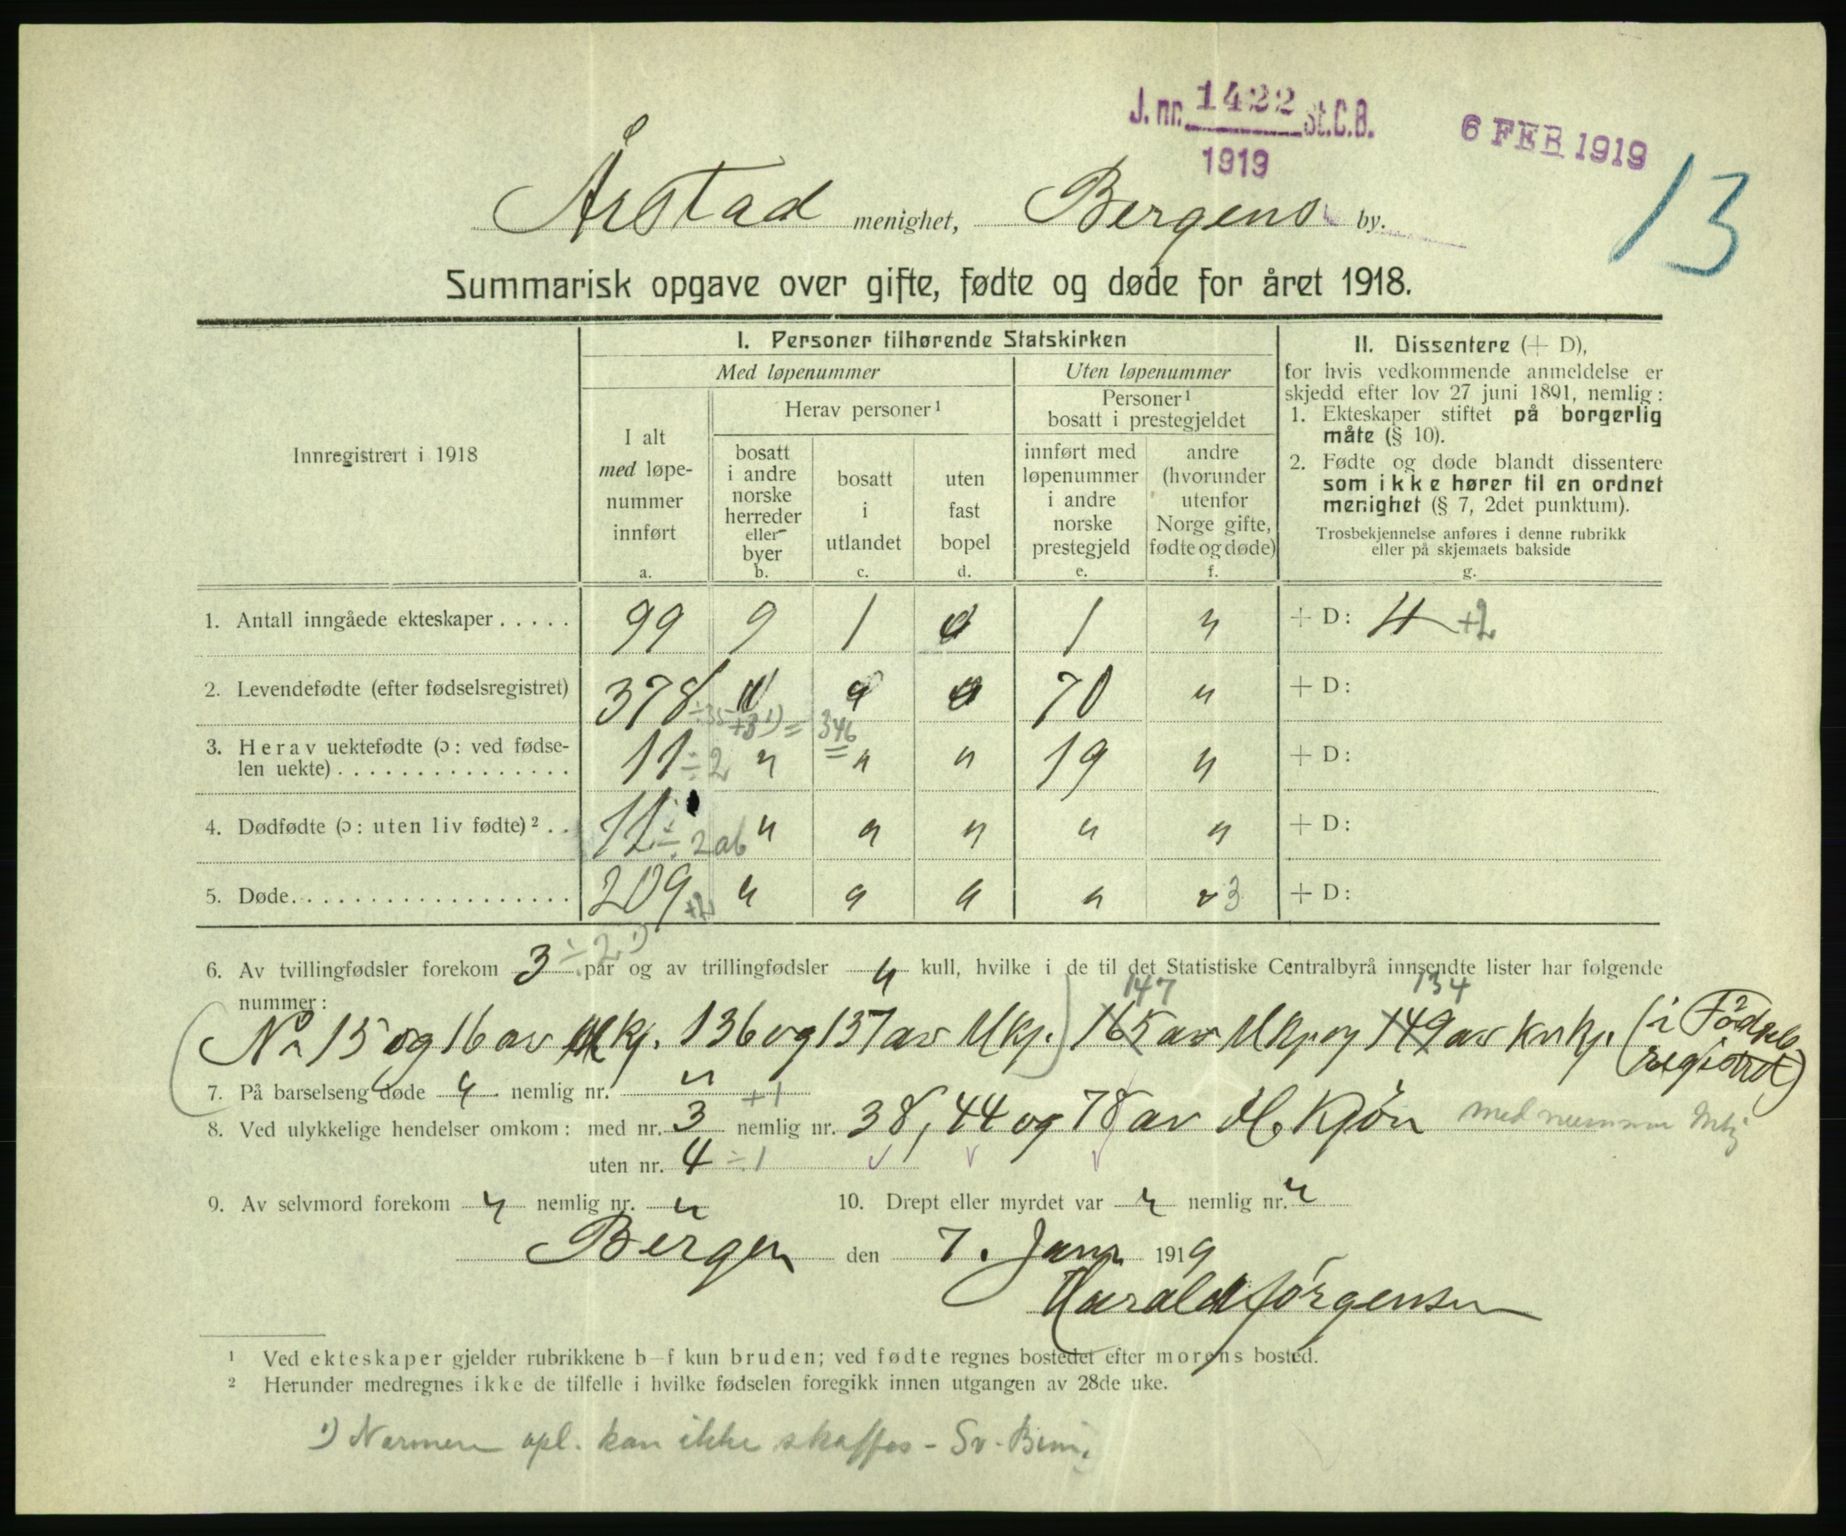 J. nr. 1422 St.C.B.
1919
6 FEB 1919
13
Årstad menighet, Bergens by.
Summarisk opgave over gifte, fødte og døde for året 1918.
Innregistrert i 1918
I. Personer tilhørende Statskirken
Med løpenummer
Uten løpenummer
I alt
med løpe-
nummer
innført
a.
Herav personer ¹
bosatt
i andre
norske
herreder
eller
byer
b.
bosatt
i
utlandet
c.
uten
fast
bopel
d.
Personer ¹
bosatt i prestegjeldet
innført med
løpenummer
i andre
norske
prestegjeld
e.
andre
(hvorunder
utenfor
Norge gifte,
fødte og døde)
f.
II. Dissentere (+ D),
for hvis vedkommende anmeldelse er
skjedd efter lov 27 juni 1891, nemlig:
1. Ekteskaper stiftet på borgerlig
måte (§ 10).
2. Fødte og døde blandt dissentere
som ikke hører til en ordnet
menighet (§ 7, 2det punktum).
Trosbekjennelse anføres i denne rubrikk
eller på skjemaets bakside
g.
1. Antall inngåede ekteskaper ..... 99 9 1 0 1 " + D: 4 +2
2. Levendefødte (efter fødselsregistret) 378 " " " 70 " + D:
÷35 +3 ¹) = 346
3. Herav uektefødte (ɔ: ved fødse-
len uekte) ............... 11 ÷2 " " " 19 " + D:
4. Dødfødte (ɔ: uten liv fødte) ² .. 11 ÷ 2 ab " " " " " + D:
5. Døde. ................. 209 +2 " " " " " 3 + D:
6. Av tvillingfødsler forekom 3 ÷2 ¹) par og av trillingfødsler " kull, hvilke i de til det Statistiske Centralbyrå innsendte lister har følgende
nummer:
147 134
(No 15 og 16 av Mkj. 136 og 137 av Mkj.) 165 av Mkj. og 149 av Kvkj. (i Fødsels
registret)
7. På barselseng døde " nemlig nr. "
8. Ved ulykkelige hendelser omkom: med nr. 3 +1 nemlig nr. 38, 44 og 78 av M. Kjøn med nummer Mkj
uten nr. 4 ÷1
9. Av selvmord forekom " nemlig nr. " 10. Drept eller myrdet var " nemlig nr. "
Bergen den 7. Janr 1919
Harald Jørgensen
¹ Ved ekteskaper gjelder rubrikkene b–f kun bruden; ved fødte regnes bostedet efter morens bosted.
² Herunder medregnes ikke de tilfelle i hvilke fødselen foregikk innen utgangen av 28de uke.
¹) Nærmere opl. kan ikke skaffes -